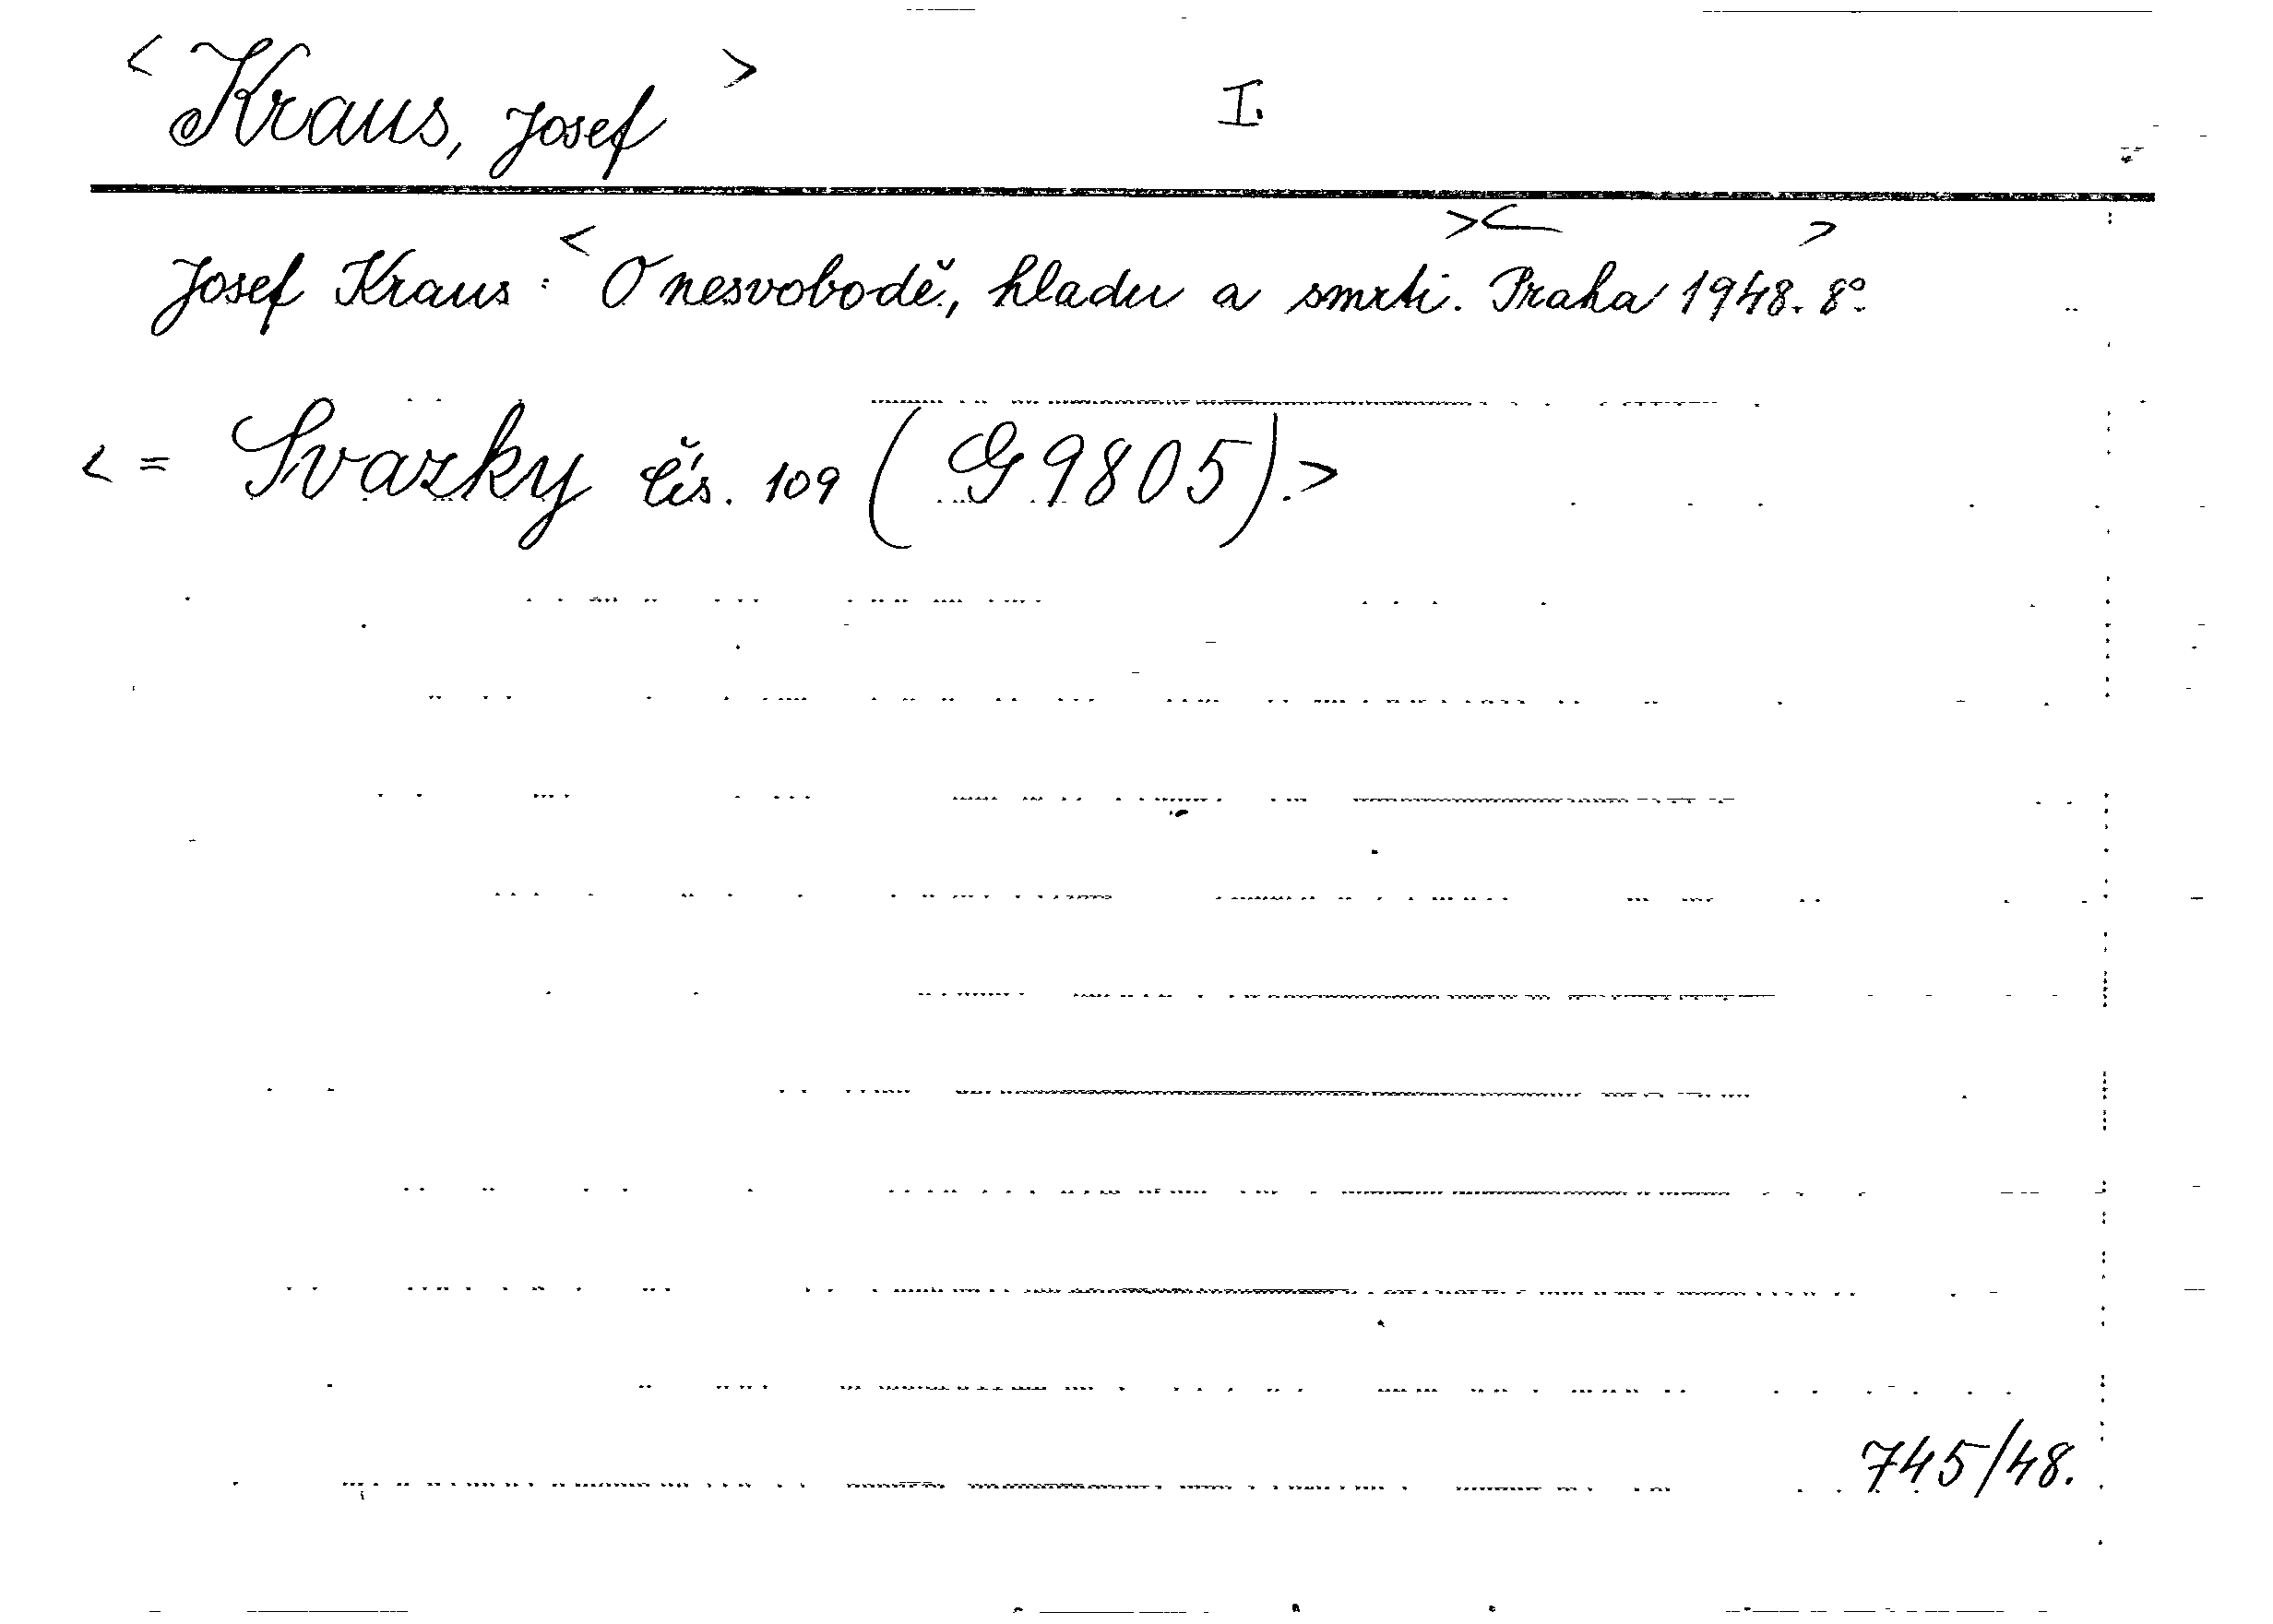 < Kraus, Josef > I.
Josef Kraus : < O nesvobodě, hladu a smrti. >< Praha 1948. > 8°.
< = Svazky čís. 109 ( G 9805 ). >
745/48.